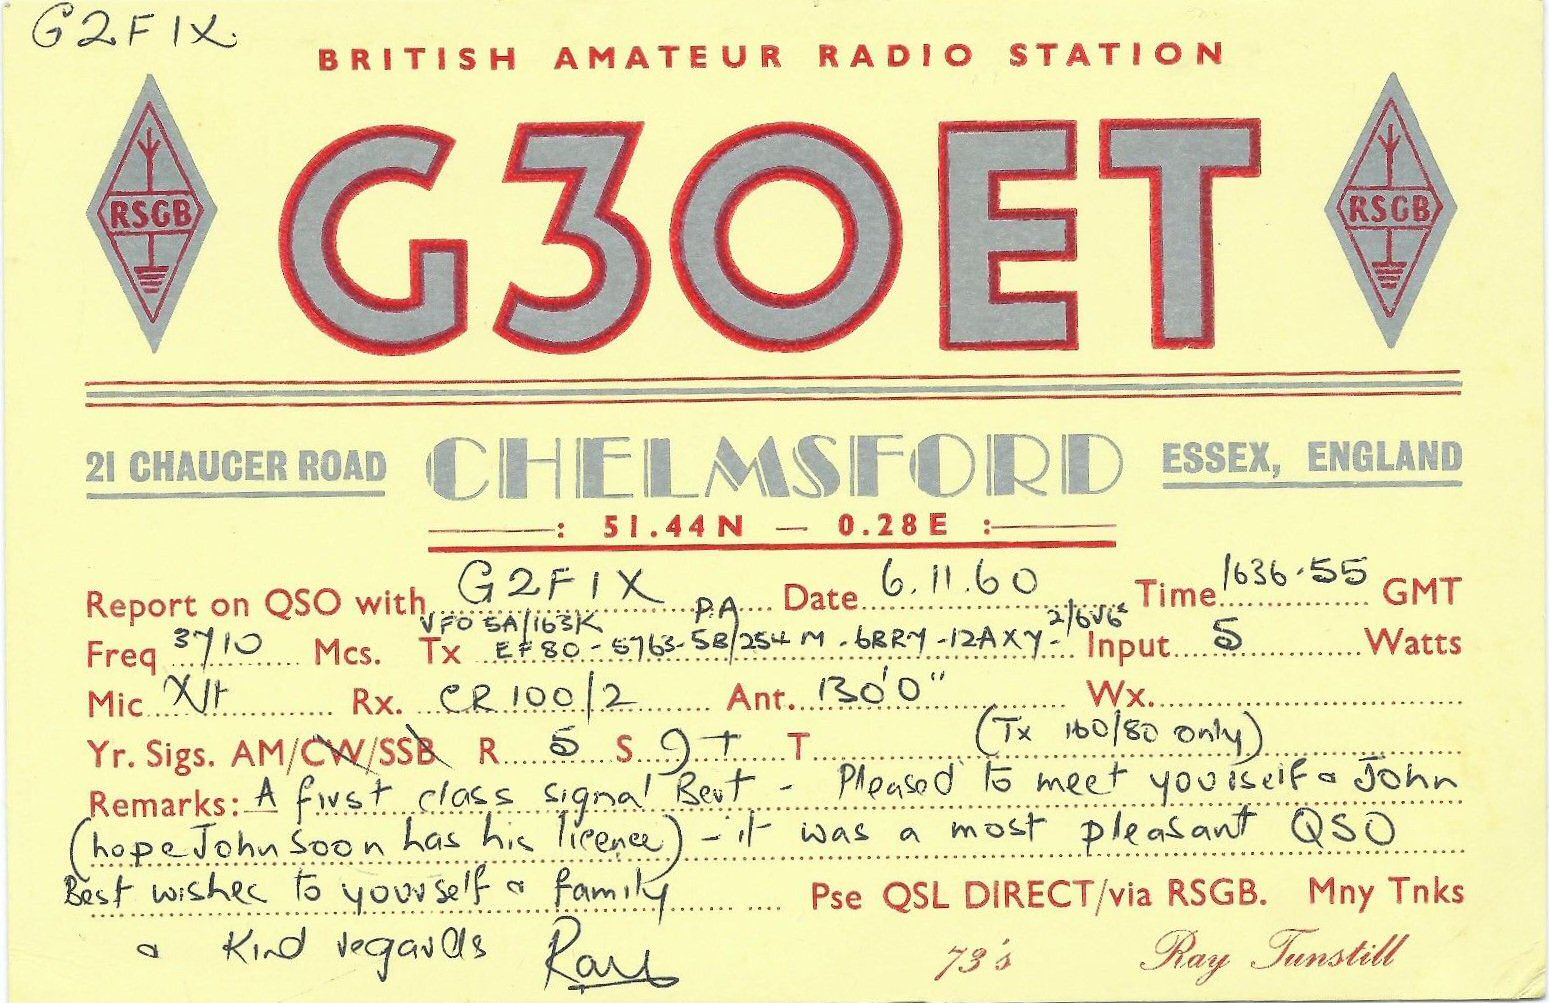 G2FIX
BRITISH AMATEUR RADIO STATION
RSGB G3OET RSGB
21 CHAUCER ROAD CHELMSFORD ESSEX, ENGLAND
: 51.44N — 0.28E :
Report on QSO with G2FIX Date 6.11.60 Time 1636.55 GMT
VFO 5A/163K PA 2/6V6s
Freq 3710 Mcs. Tx EF80 - 5763 - 5B/254M - 6BR7 - 12AX7 - Input 5 Watts
Mic Xtl Rx. CR100/2 Ant. 130'0" Wx.
Yr. Sigs. AM/CW/SSB R 5 S 9+ T (Tx 160/80 only)
Remarks: A first class signal Bert - Pleased to meet yourself & John
(hope John soon has his licence) - it was a most pleasant QSO
Best wishes to yourself & family Pse QSL DIRECT/via RSGB. Mny Tnks
& Kind regards Ray 73's Ray Tunstill